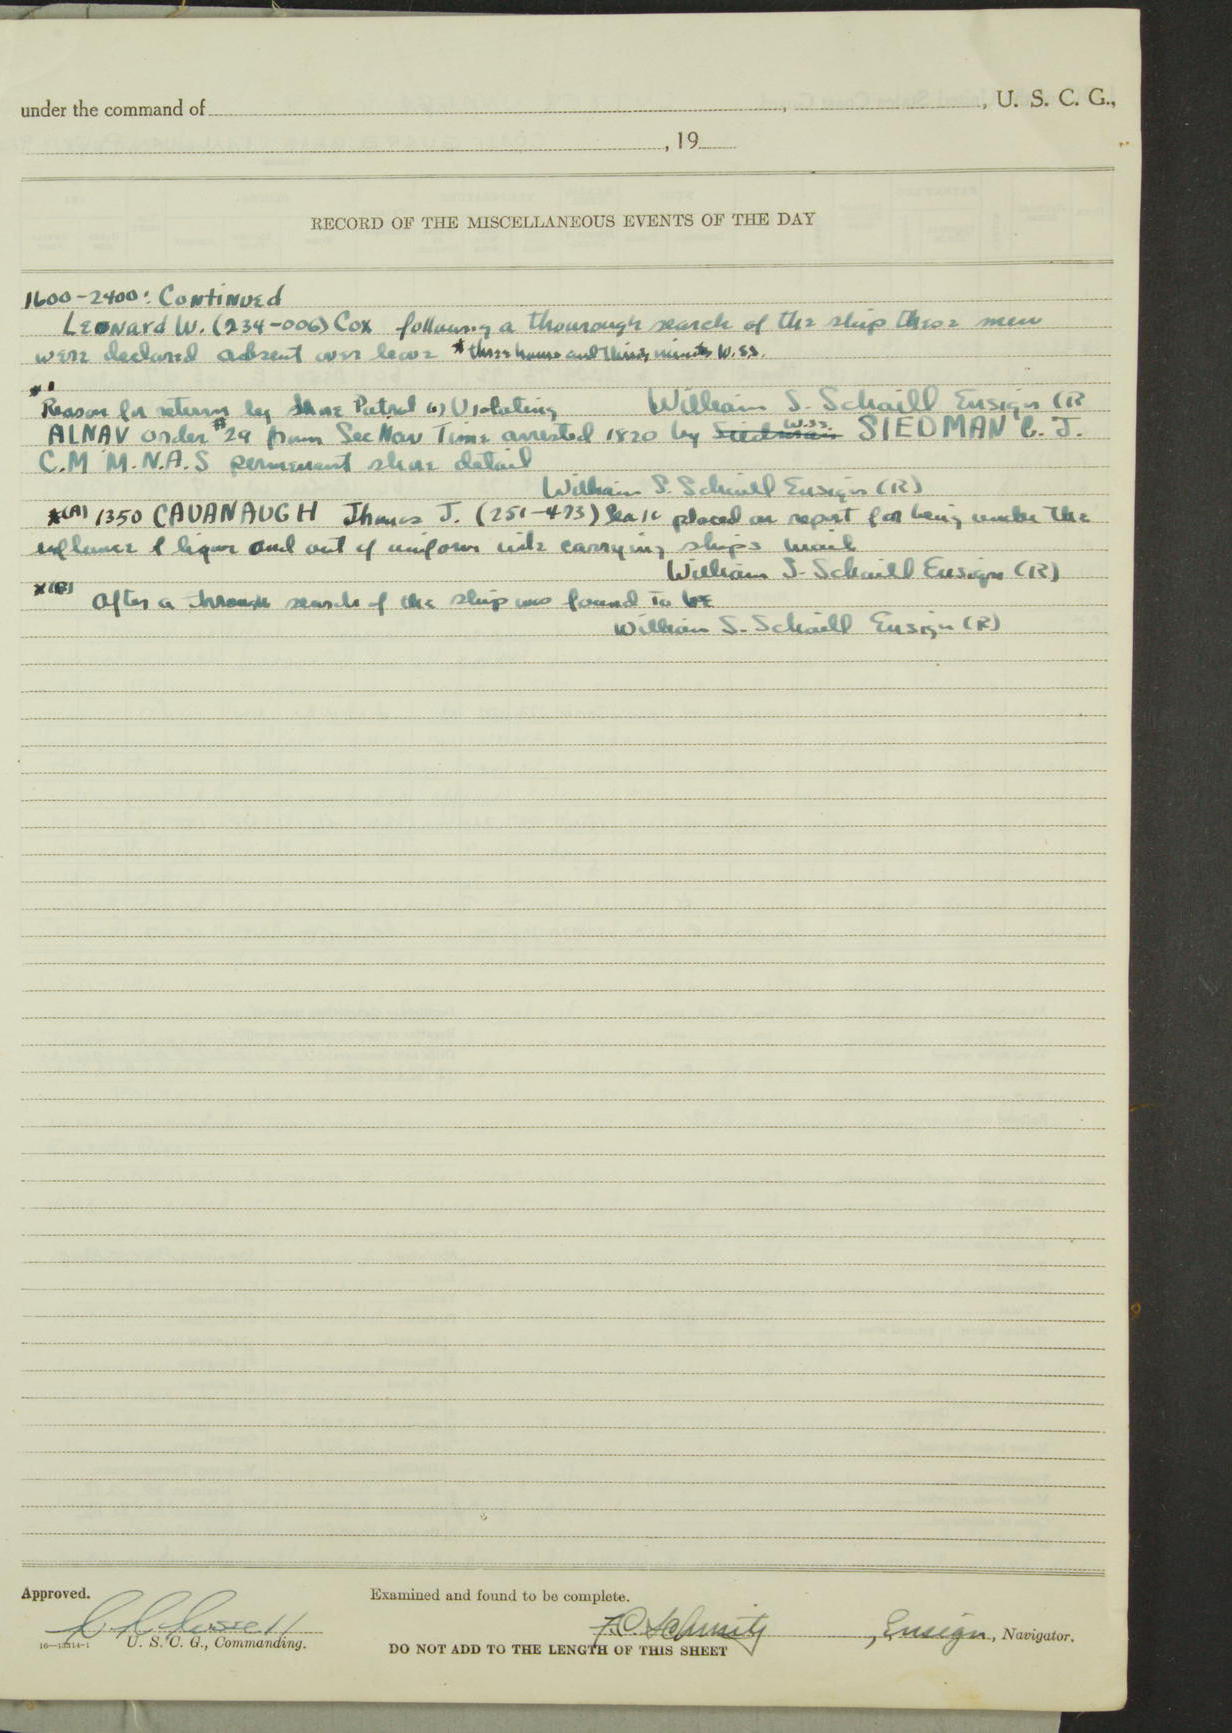 under the command of , , U. S. C. G.,
, 19
RECORD OF THE MISCELLANEOUS EVENTS OF THE DAY
1600-2400: Continued
Leonard W. (234-006) Cox following a thourough search of the ship these men
were declared absent over leave * three hours and thirty minutes W.S.S.
*1
Reason for return by Shore Patrol (6) Violating William S. Schaill Ensign (R
ALNAV order #29 from Sec Nav Time arrested 1820 by Siedman W.S.S. SIEDMAN C. J.
C.M M.N.A.S permenent shore detail
William S. Schaill Ensign (R)
*(A) 1350 CAVANAUGH Thomas J. (251-473) Sea 1c placed on report for being under the
influence of liquor and out of uniform while carrying ships mail
William S. Schaill Ensign (R)
*(B) After a through search of the ship was found to be
William S. Schaill Ensign (R)
Approved. Examined and found to be complete.
F.C. Schmitz , Ensign, Navigator.
U. S. C. G., Commanding.
DO NOT ADD TO THE LENGTH OF THIS SHEET